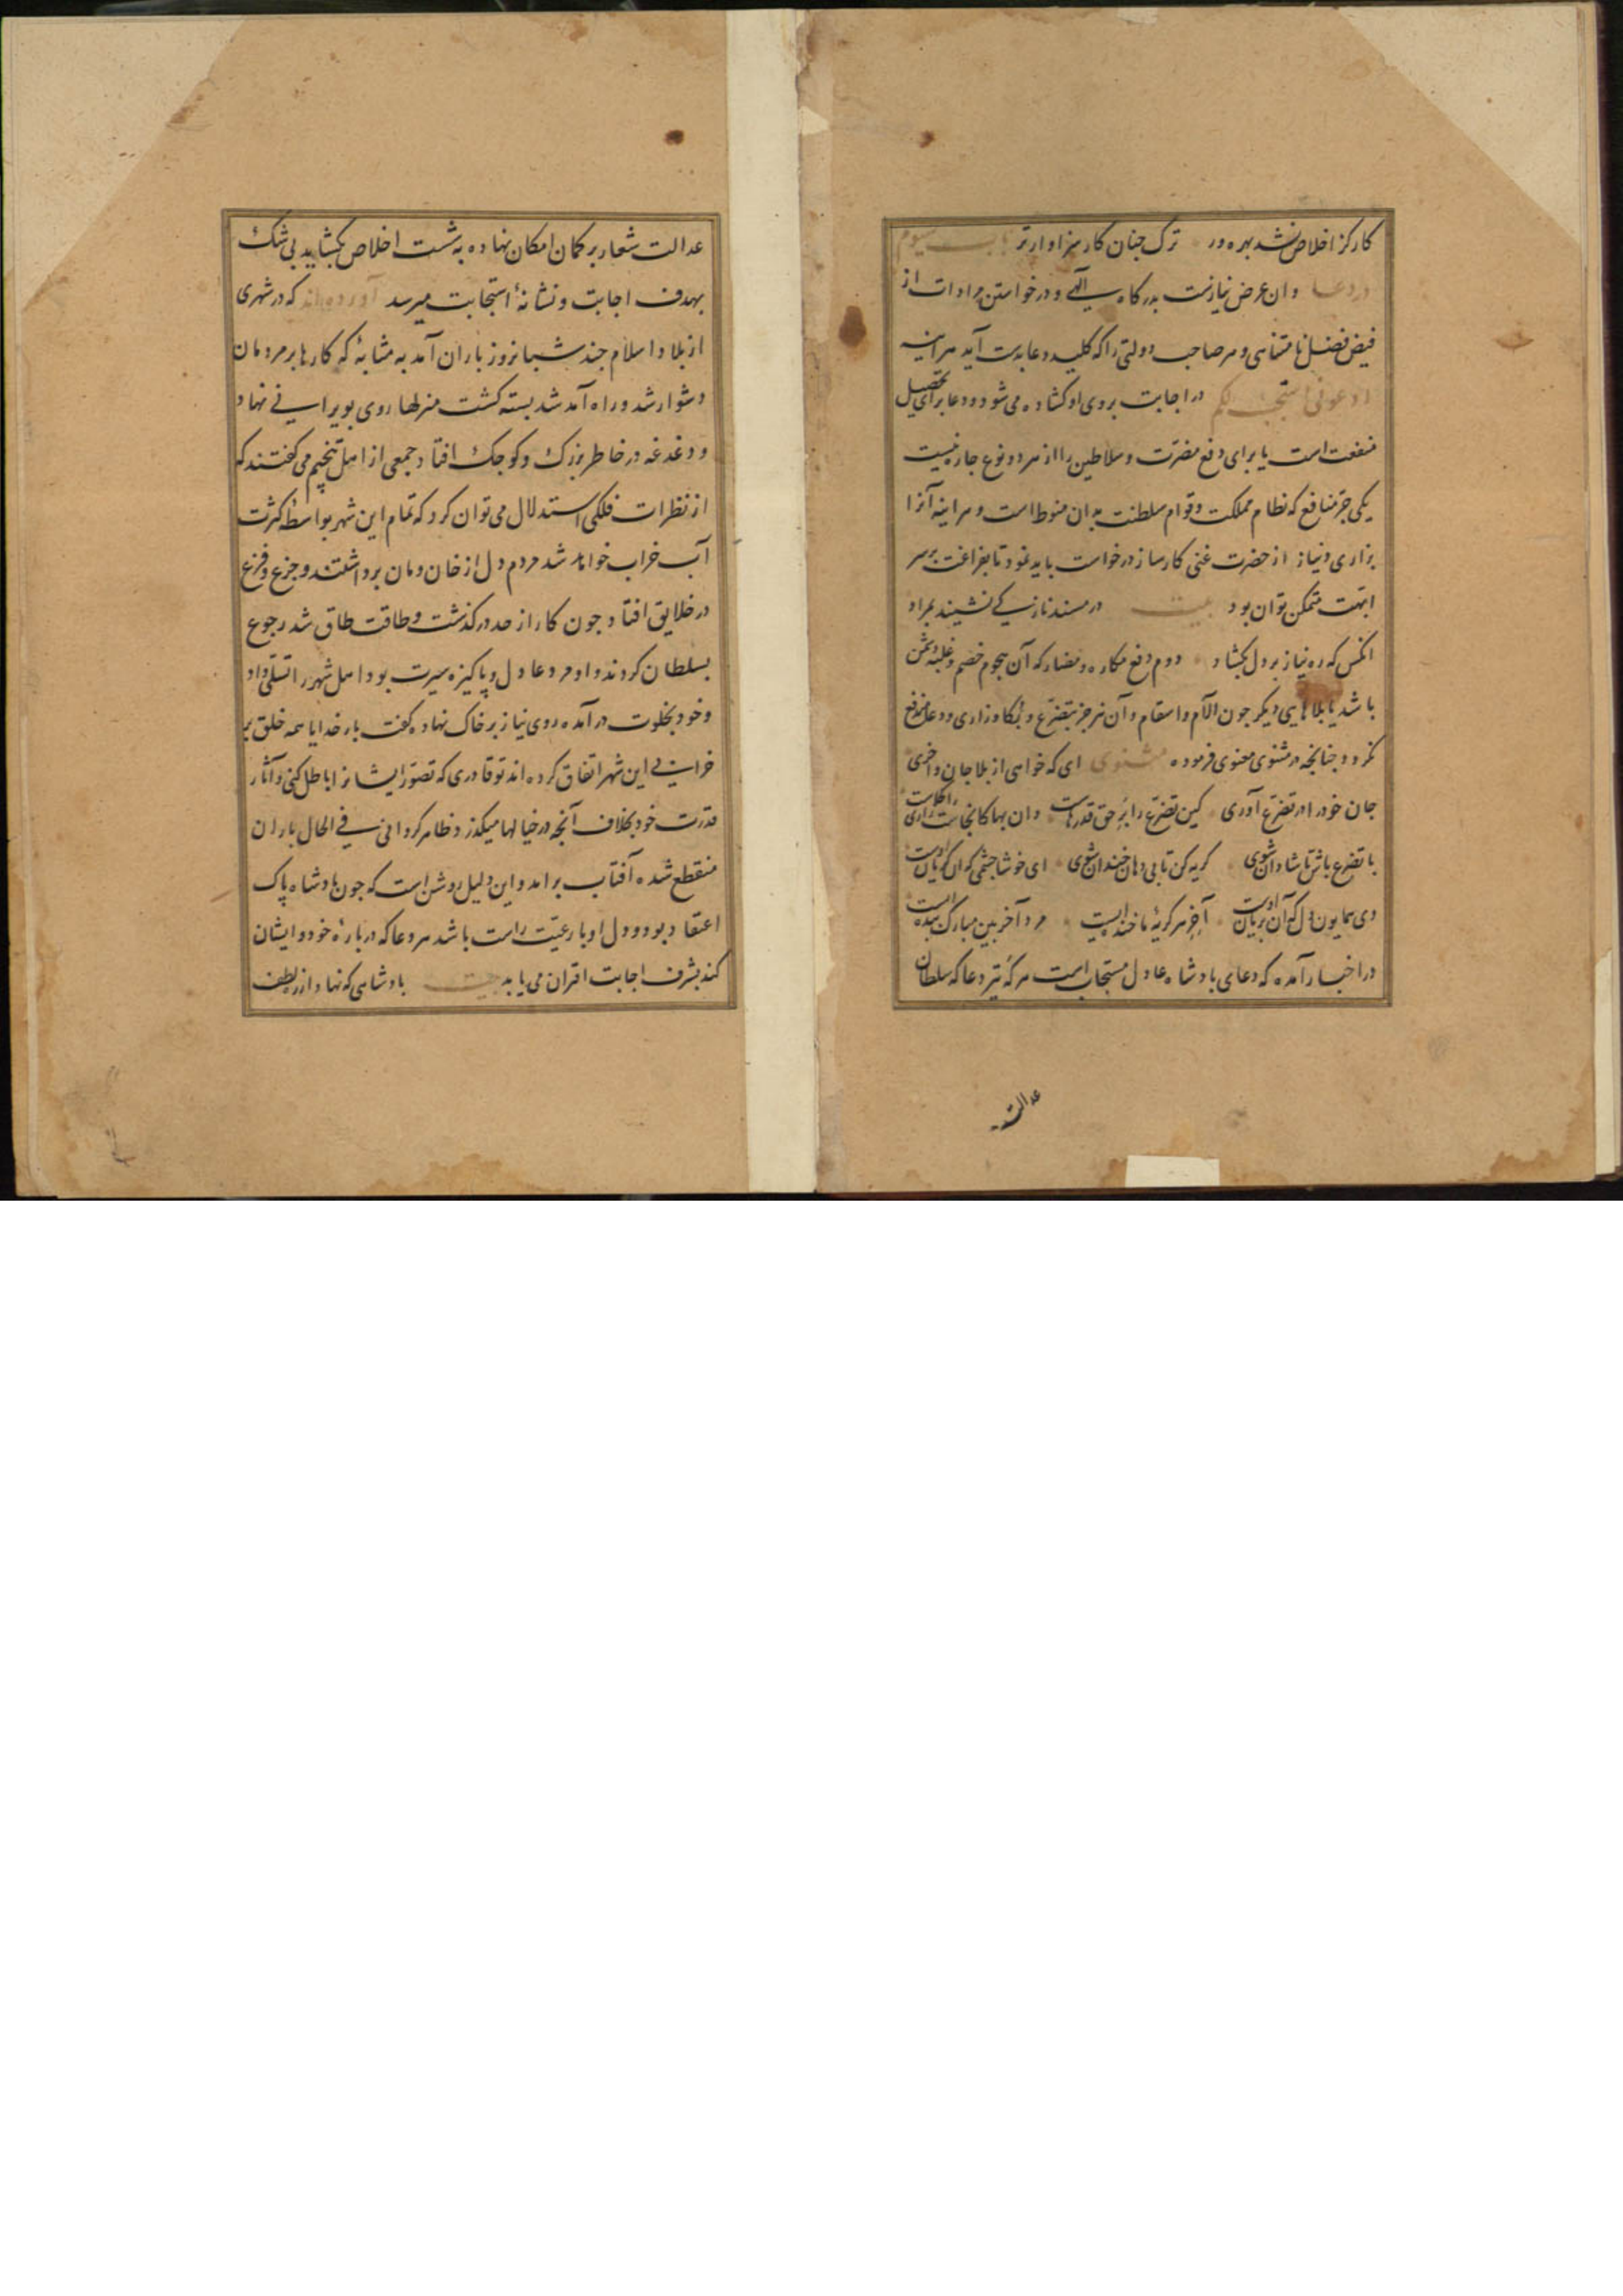 کار کز اخلاص نشد بهره ور ترک چنان کار سزاوارتر باب سیوم
در دعا و ان عرض نیازست بدرکاه الهی و درخواستن مرادات از
فیض فضل نامتناهی و هر صاحب دولتی را که کلید دعا بدست آید هراینه
ادعونی استجب لکم در اجابت بروی او کشاده می شود و دعا برای تحصیل
منفعت است یا برای دفع مضرت و سلاطین را از هر دو نوع چاره نیست
یکی جر منافع که نظام مملکت و قوام سلطنت بدان منوط است و هراینه آنرا
بزاری و نیاز از حضرت غنی کارساز درخواست باید نمود تا بفراغت بر سر
ابهت متمکن توان بود بیت در مسند ناز کی نشیند بمراد
انکس که ره نیاز بر دل بکشاد دوم دفع مکاره و مضار که آن هجوم خصم و غلبه دشمن
باشد یا بلاهایی دیکر جون آلام و اسقام و آن نیز جز بتضرع و بکا و زاری و دعا مندفع
نکردد جنانچه در مثنوی معنوی فرموده مثنوی ای که خواهی از بلا جان واخری
جان خود را در تضرع آوری کین تضرع را بر حق قدرهاست وان بها کانجاست زاری را کجاست
با تضرع باش تا شادان شوی کریه کن تا بی دهان خندان شوی ای خوشا چشمی که آن کریان اوست
وی همایون دل که آن بریان اوست آخر هر کریه ما خنده ایست مرد آخر بین مبارک بنده ایست
در اخبار آمده که دعای بادشاه عادل مستجاب است هر که تیر دعا که سلطان
عدالت
عدالت شعار بر کمان امکان نهاده به شست اخلاص بکشاید بی شک
بهدف اجابت و نشانهٔ استجابت میرسد آورده اند که در شهری
از بلاد اسلام جند شبانروز باران آمد به مثابهٔ که کارها بر مردمان
دشوار شد و راه آمد شد بسته کشت منزلها روی بویرانی نهاد
و دغدغه در خاطر بزرک و کوجک افتاد جمعی از اهل تنجیم می کفتند که
از نظرات فلکی استدلال می توان کرد که تمام این شهر بواسطهٔ کثرت
آب خراب خواهد شد مردم دل از خان و مان برداشتند و جزع و فزع
در خلایق افتاد جون کار از حد در کذشت و طاقت طاق شد رجوع
بسلطان کردند و او مرد عادل و پاکیزه سیرت بود اهل شهر را تسلی داد
و خود بخلوت درآمده روی نیاز بر خاک نهاد و کفت بار خدایا همه خلق بر
خرابی این شهر اتفاق کرده اند تو قادری که تصور ایشانرا باطل کنی و آثار
قدرت خود بخلاف آنجه در خیالها میکذرد ظاهر کردانی فی الحال باران
منقطع شده آفتاب برامد و این دلیل روشن است که جون بادشاه پاک
اعتقاد بود و دل او با رعیت راست باشد هر دعا که در بارهٔ خود و ایشان
کند بشرف اجابت اقتران می یابد بیت بادشاهی که نهاد از ره لطف